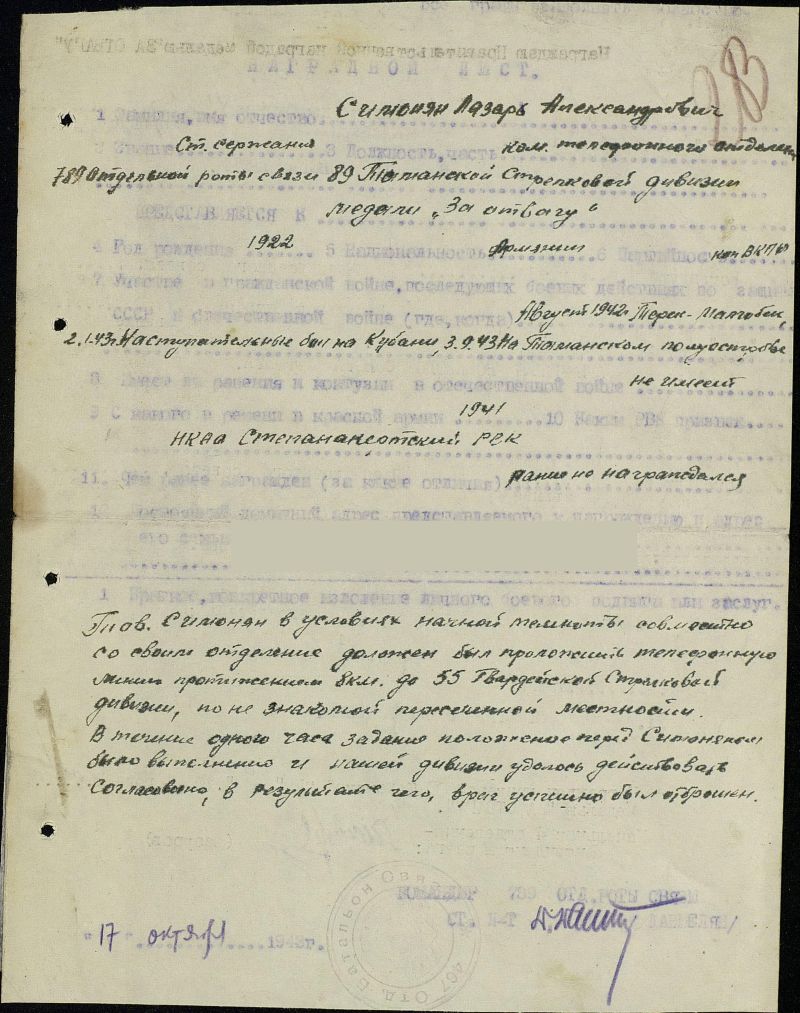 Награжден Правительственной наградой медалью "ЗА ОТВАГУ"
НАГРАДНОЙ ЛИСТ.
1 Фамилия, имя отчество. Симонян Лазарь Александрович
Ст. сержант 3 Должность, часть ком. телефонного отделен
789 Отдельной роты связи 89 Таманской Стрелковой дивизии
ПРЕДСТАВЛЯЕТСЯ К медали „За отвагу"
4 Год рождения 1922 5 Национальность Армянин 6 Партийность кан ВКП(б)
7 Участие в гражданской войне, последующих боевых действиях по защите
СССР и отечественной войне (где, когда). Август 1942 Терек-
2.1.43г. Наступательные бои на Кубани, 3.9.43 На Таманском полуострове
8 Имеет ли ранения и контузии в отечественной войне не имеет
9 С какого времени в красной армии 1941 10 Каким РВК призван
НКАО Степанакертский РВК
11. Чем ранее награжден (за какие отличия) ранее не награждался
12 Постоянный домашний адрес представляемого к награждению и адрес
его семьи
1 Краткое, конкретное изложение личного боевого подвига или заслуг.
Тов. Симонян в условиях начной темноты совместно
со своим отделение должен был проложить телефонную
линию протяжением 8км. до 55 Гвардейской Стрелковой
дивизии, по не знакомой пересеченной местности.
В течение одного часа задание положеное перед Симоняном
было выполнено и нашей дивизии удалось действовать
согласовано, в результате чего, враг успешно был отброшен.
КОМАНДИР 789 ОТД.РОТЫ СВЯЗИ
СТ. Л-Т
"17" октября 1943г.
467 Отд. Батальон Свя